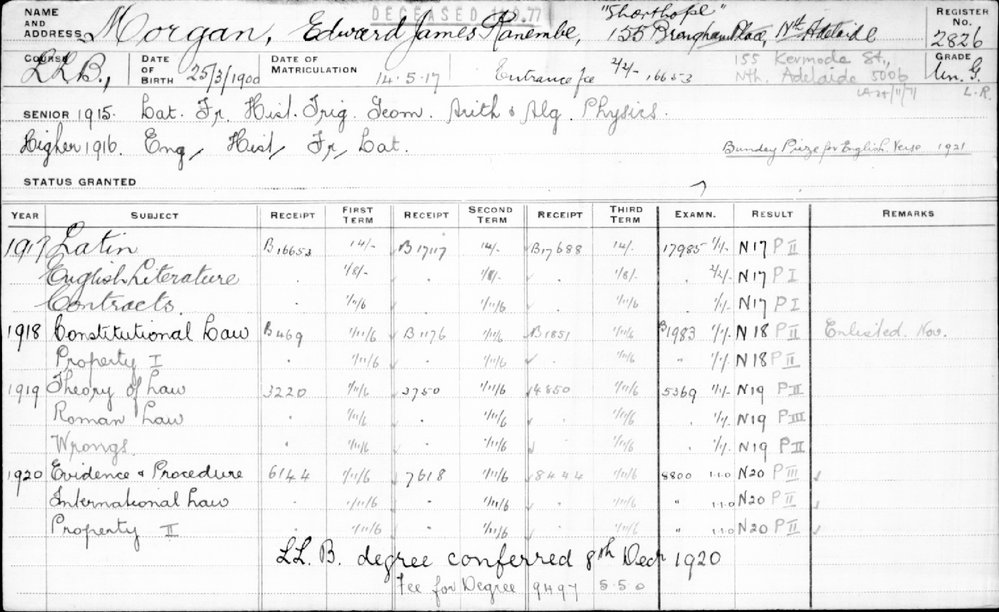 DECEASED
NAME AND ADDRESS Morgan, Edward James Ranembe, "Shorthope" 155 Brougham Place, Nth Adelaide REGISTER No. 2826
COURSE LL.B., DATE OF BIRTH 25/3/1900 DATE OF MATRICULATION 14.5.17 Entrance fee 2/2/- 16653 155 Kermode St., Nth. Adelaide 5006 GRADE Un. G.
L.R.
SENIOR 1915. Lat. Fr. Hist. Trig. Geom. Arith & Alg. Physics.
Higher 1916. Eng, Hist, Fr, Lat. Bundey Prize for English Verse 1921
STATUS GRANTED
YEAR SUBJECT RECEIPT FIRST TERM RECEIPT SECOND TERM RECEIPT THIRD TERM EXAMN. RESULT REMARKS
1917 Latin B16653 14/- B17117 14/- B17688 14/- 17985 1/1/- N17 P II
English Literature . 1/8/- . 1/8/- . 1/8/- . 2/2/- N17 P I
Contracts. . 1/11/6 . 1/11/6 . 1/11/6 . 1/1/- N17 P I
1918 Constitutional Law B469 1/11/6 B1176 1/11/6 B1851 1/11/6 B1983 1/1/- N18 P II Enlisted. Nov.
Property I . 1/11/6 . 1/11/6 . 1/11/6 " 1/1/- N18 P II
1919 Theory of Law 3220 1/11/6 3750 1/11/6 4850 1/11/6 5369 1/1/- N19 P II
Roman Law . 1/11/6 . 1/11/6 . 1/11/6 . 1/1/- N19 P III
Wrongs. . 1/11/6 . 1/11/6 . 1/11/6 . 1/1/- N19 P II
1920 Evidence & Procedure 6144 1/11/6 7618 1/11/6 8444 1/11/6 8800 1.1.0 N20 P III
International Law . 1/11/6 . 1/11/6 . 1/11/6 " 1.1.0 N20 P II
Property II . 1/11/6 . 1/11/6 . 1/11/6 " 1.1.0 N20 P II
LL. B. degree conferred 8th Decr 1920
Fee for Degree 9497 5.5.0